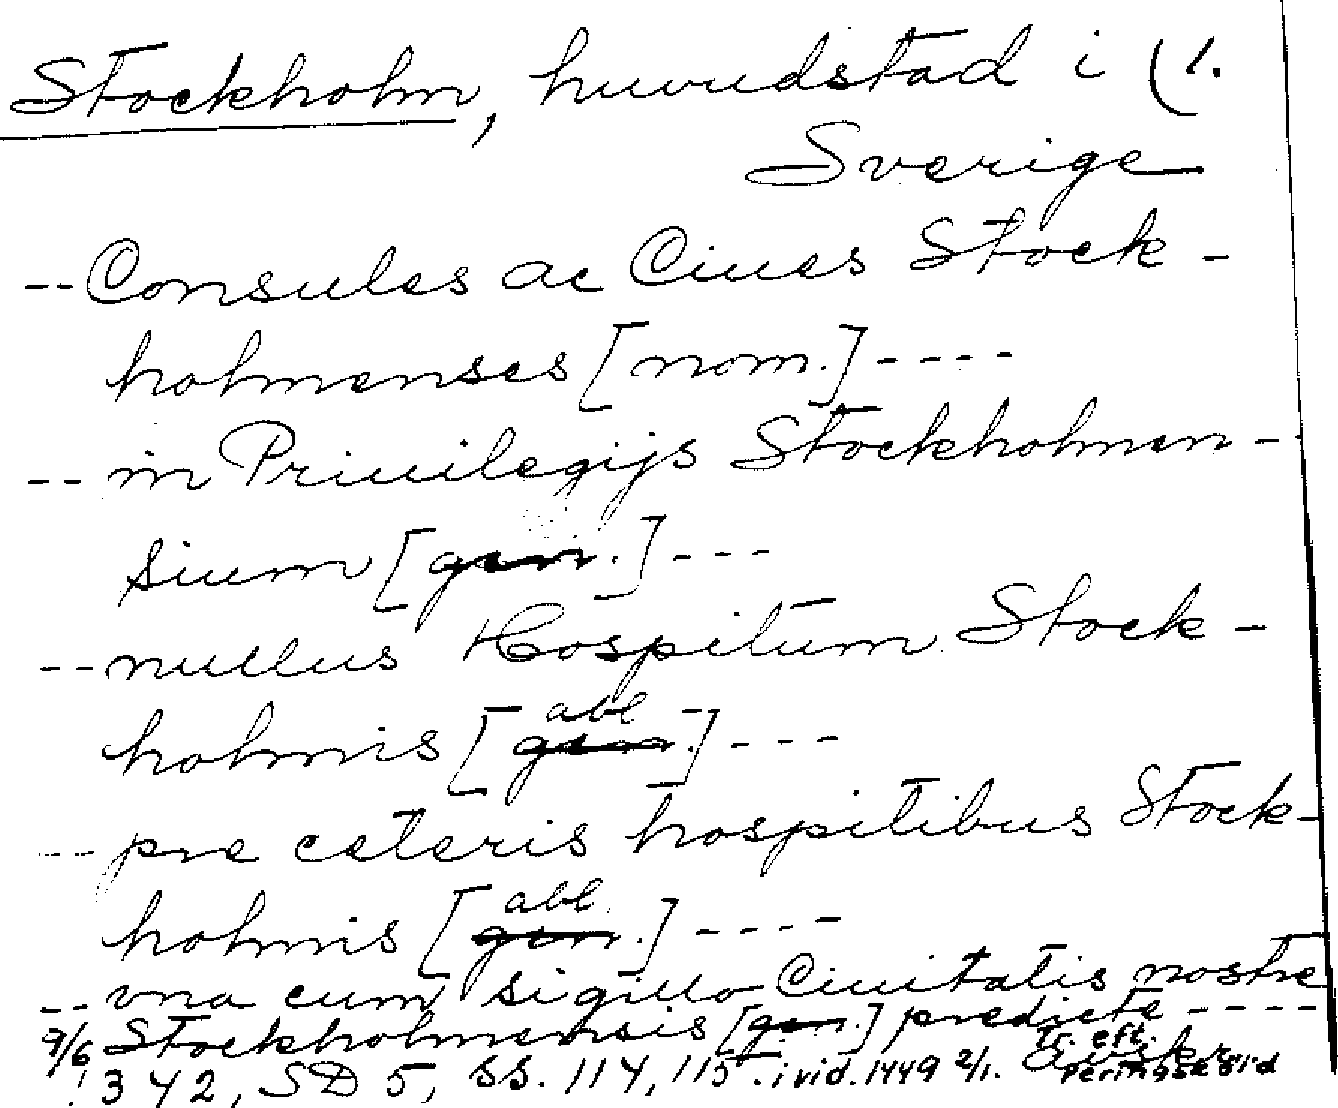 Stockholm, huvudstad i (1.
Sverige
-- Consules ac Ciues Stock-
holmenses [nom.] ----
-- in Priuilegijs Stockholmen-
sium [gen.] ---
-- nullus Hospitum Stock-
holmis [gen. abl.] ---
-- pre ceteris hospitibus Stock-
holmis [gen. abl.] ----
-- vna cum sigillo Ciuitatis nostre
Stockholmensis [gen.] predicte ----
9/6 342, SD 5, ss. 114, 115. i vid. 1449 2/1. Tr. eft. Peringskiöld